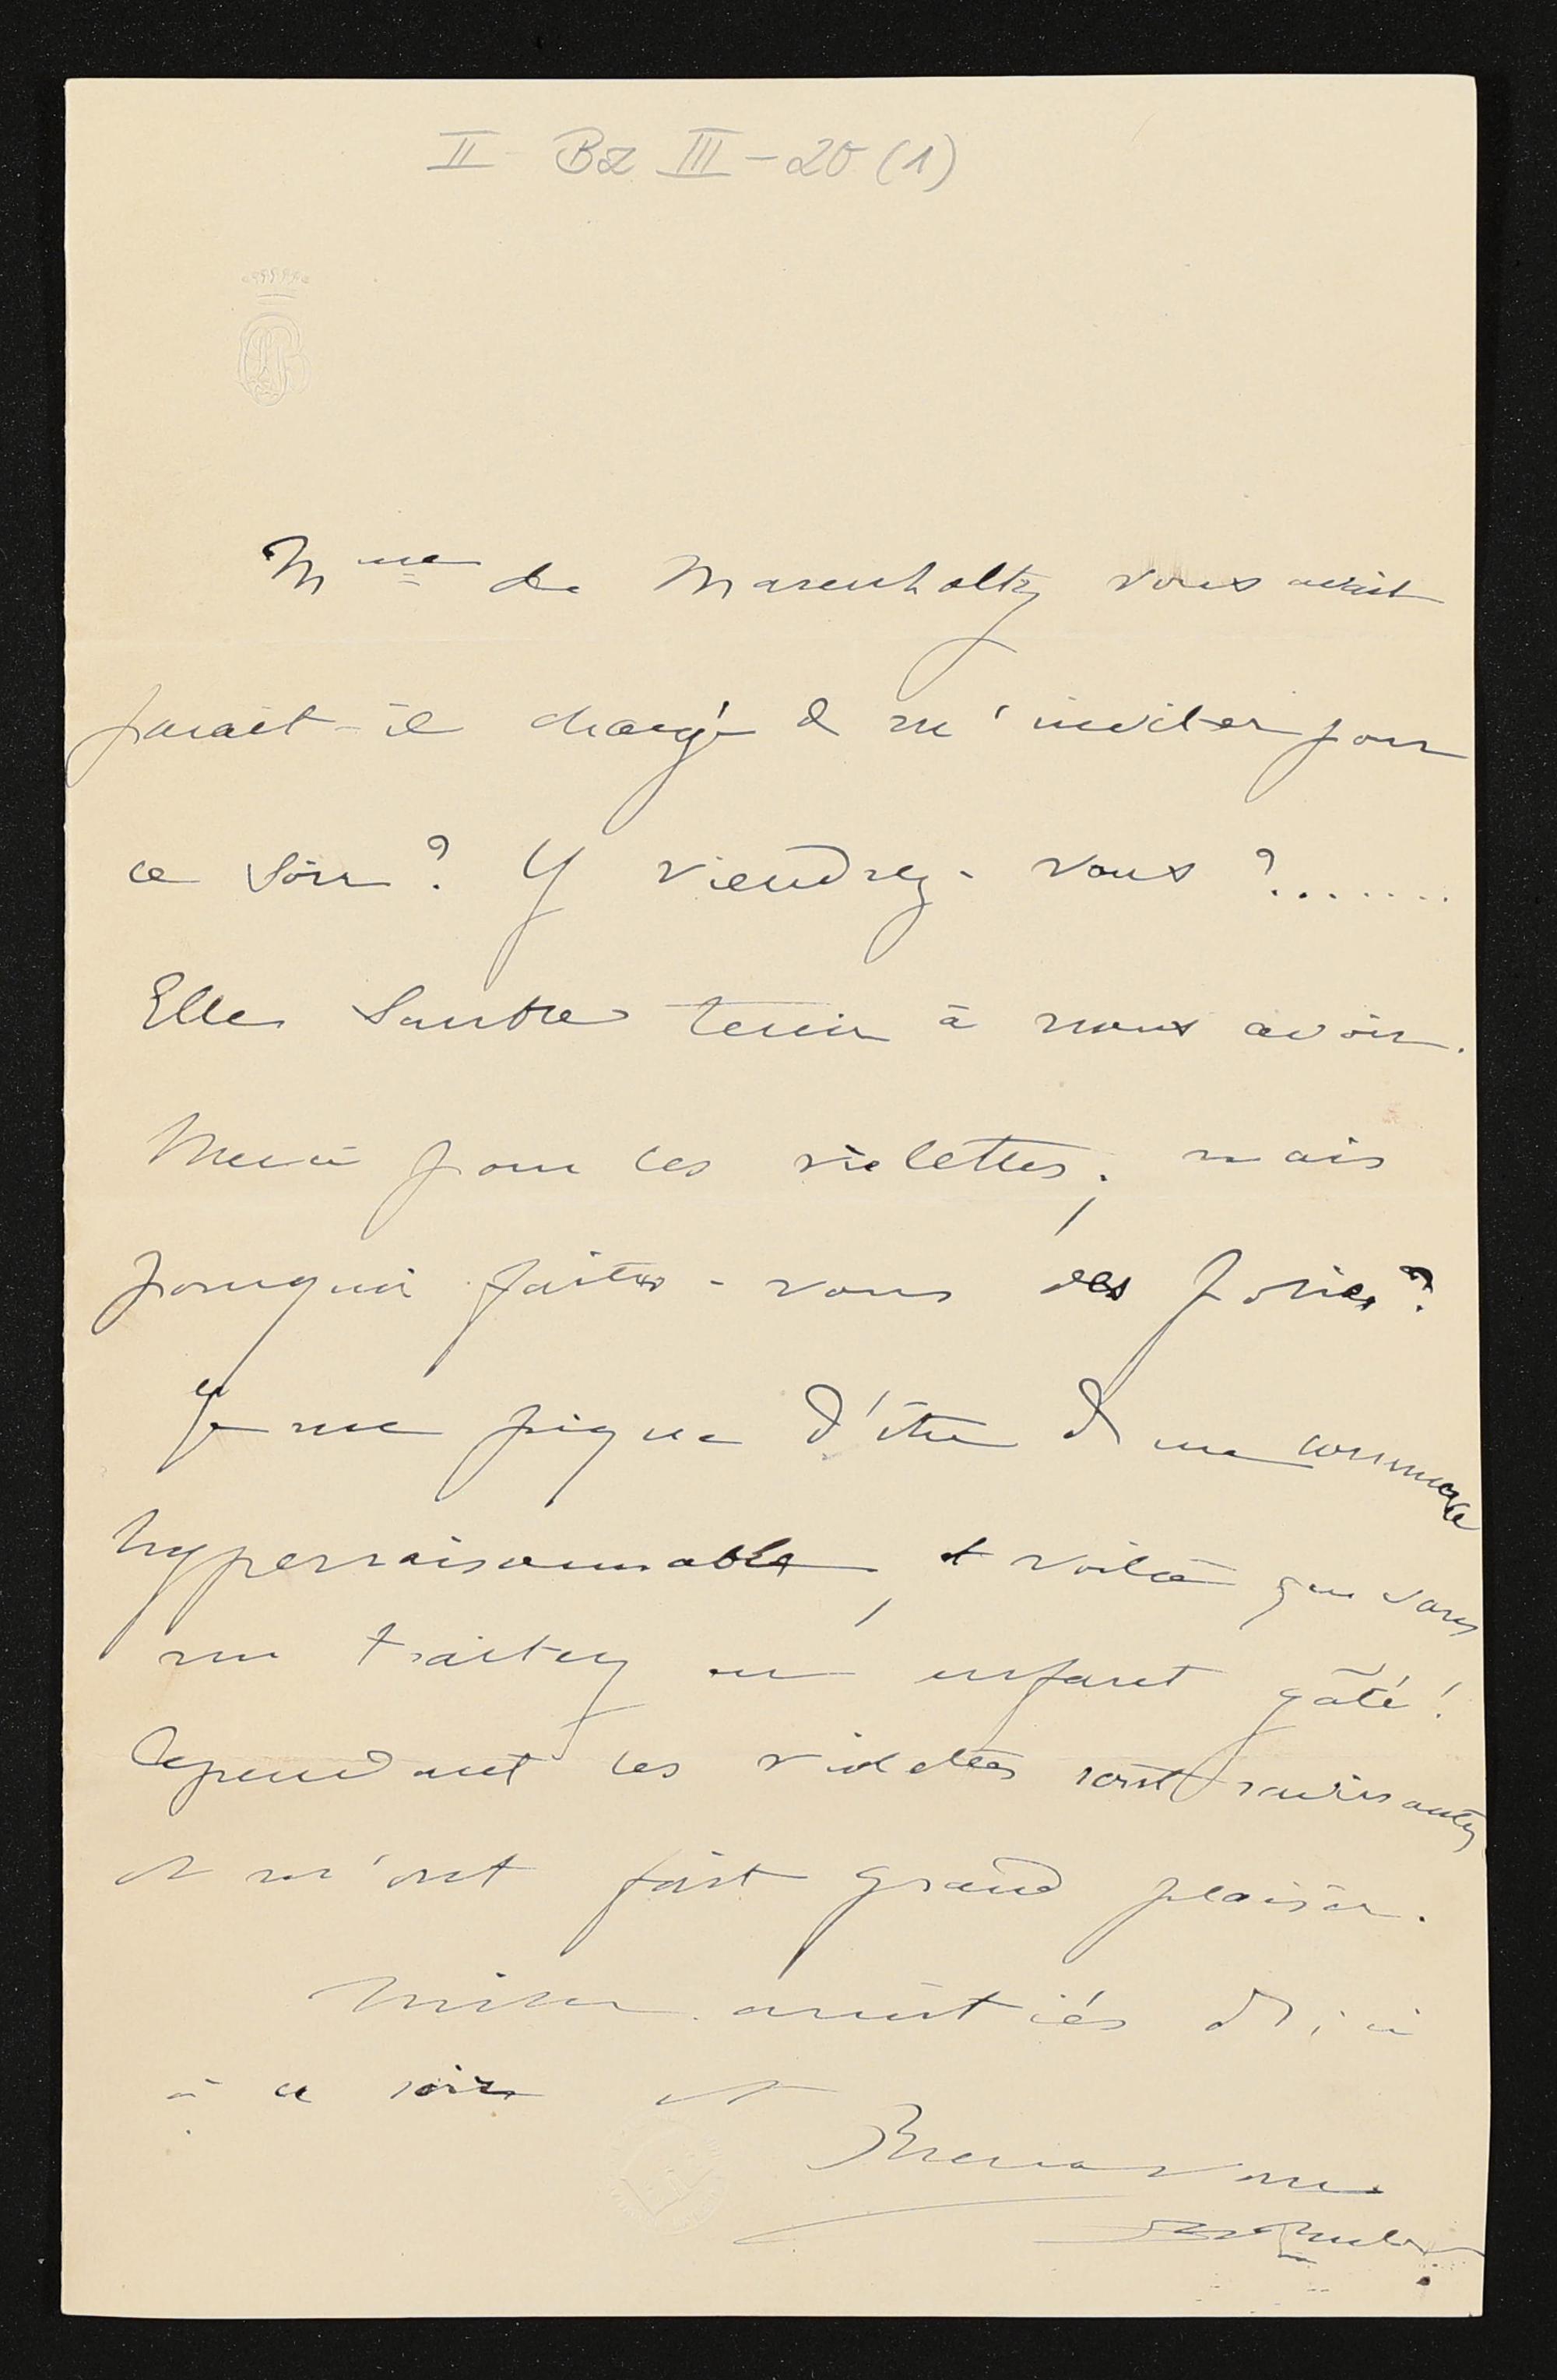 II Bz III - 20 (1)
Mme de Marenholtz vous avait
parait-il chargé de m'inviter pour
ce soir? Y viendrez-vous ?.......
Elle semble tenir à nous avoir.
Merci pour les violettes; mais
pourquoi faites-vous des folies?
Je me pique d'être d'une
hyperraisonnable, et voilà que vous
me traitez en enfant gâté!
Cependant les violettes sont ravissantes
et m'ont fait grand plaisir.
Mille amitiés d'ici
à ce soir et